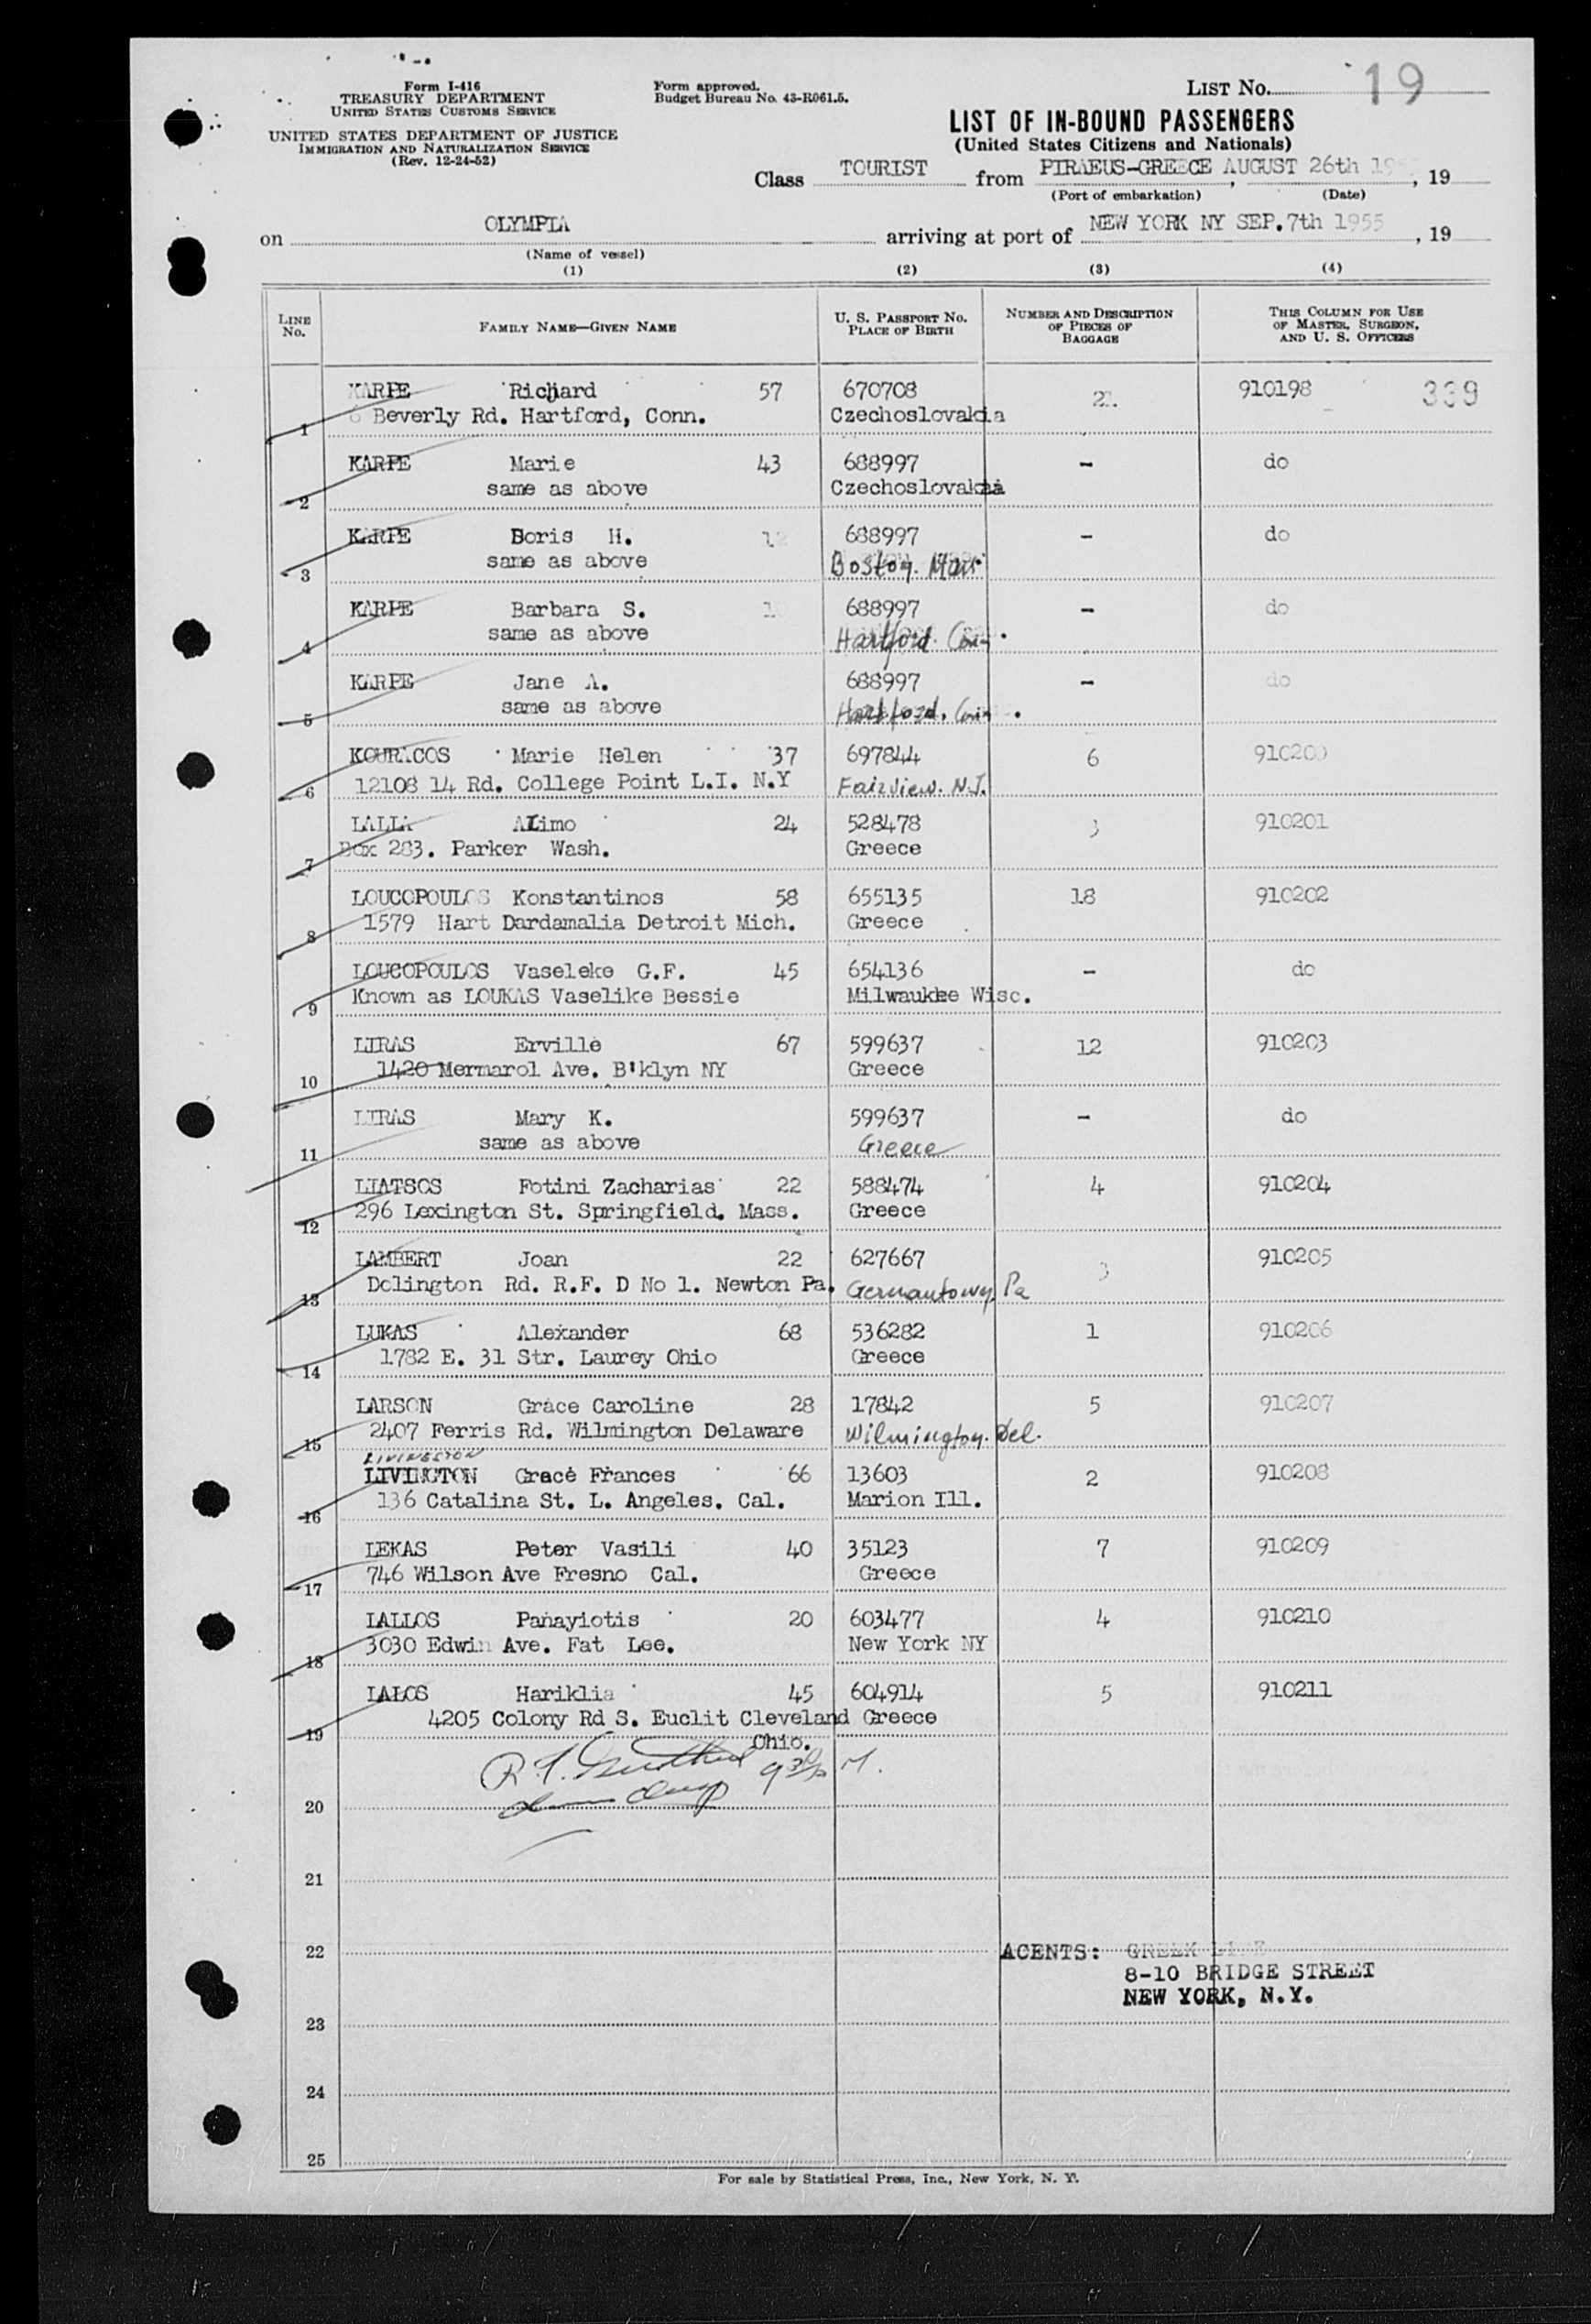 Form I-416
TREASURY DEPARTMENT
UNITED STATES CUSTOMS SERVICE
UNITED STATES DEPARTMENT OF JUSTICE
IMMIGRATION AND NATURALIZATION SERVICE
(Rev. 12-24-52)
Form approved.
Budget Bureau No. 43-R061.5.
LIST NO. 19
LIST OF IN-BOUND PASSENGERS
(United States Citizens and Nationals)
Class TOURIST from PIRAEUS-GREECE, AUGUST 26th, 19
(Port of embarkation) (Date)
on OLYMPIA arriving at port of NEW YORK NY SEP.7th 1955, 19
(Name of vessel)
(1) (2) (3) (4)
LINE No. FAMILY NAME—GIVEN NAME U. S. PASSPORT NO. PLACE OF BIRTH NUMBER AND DESCRIPTION OF PIECES OF BAGGAGE THIS COLUMN FOR USE OF MASTER, SURGEON, AND U. S. OFFICERS
KARPE Richard 57 670708 21. 910198 339
1 6 Beverly Rd. Hartford, Conn. Czechoslovakia
KARPE Marie 43 688997 - do
2 same as above Czechoslovakia
KARPE Boris H. 688997 - do
3 same as above Boston. Mass.
KARPE Barbara S. 688997 - do
4 same as above Hartford. Conn.
KARPE Jane A. 688997 - do
5 same as above Hartford. Conn.
KOURACOS Marie Helen 37 697844 6 910200
6 12108 14 Rd. College Point L.I. N.Y Fairview. N.J.
LALLA Alimo 24 528478 3 910201
7 Box 283. Parker Wash. Greece
LOUCOPOULOS Konstantinos 58 655135 18 910202
8 1579 Hart Dardamalia Detroit Mich. Greece
LOUCOPOULOS Vaseleke G.F. 45 654136 - do
9 Known as LOUKAS Vaselike Bessie Milwaukee Wisc.
LIRAS Erville 67 599637 12 910203
10 1420 Mermarol Ave. B'klyn NY Greece
LIRAS Mary K. 599637 - do
11 same as above Greece
LIATSOS Fotini Zacharias 22 588474 4 910204
12 296 Lexington St. Springfield. Mass. Greece
LAMBERT Joan 22 627667 3 910205
13 Dolington Rd. R.F. D No 1. Newton Pa. Germantown Pa
LUKAS Alexander 68 536282 1 910206
14 1782 E. 31 Str. Laurey Ohio Greece
LARSON Grace Caroline 28 17842 5 910207
15 2407 Ferris Rd. Wilmington Delaware Wilmington. Del.
LIVINGSTON
LIVINGTON Grace Frances 66 13603 2 910208
16 136 Catalina St. L. Angeles. Cal. Marion Ill.
LEKAS Peter Vasili 40 35123 7 910209
17 746 Wilson Ave Fresno Cal. Greece
LALLOS Panayiotis 20 603477 4 910210
18 3030 Edwin Ave. Fat Lee. New York NY
LALOS Hariklia 45 604914 5 910211
19 4205 Colony Rd S. Euclit Cleveland Greece
Ohio.
20
21
22 AGENTS: GREEK LINE
8-10 BRIDGE STREET
NEW YORK, N.Y.
23
24
25
For sale by Statistical Press, Inc., New York, N. Y.